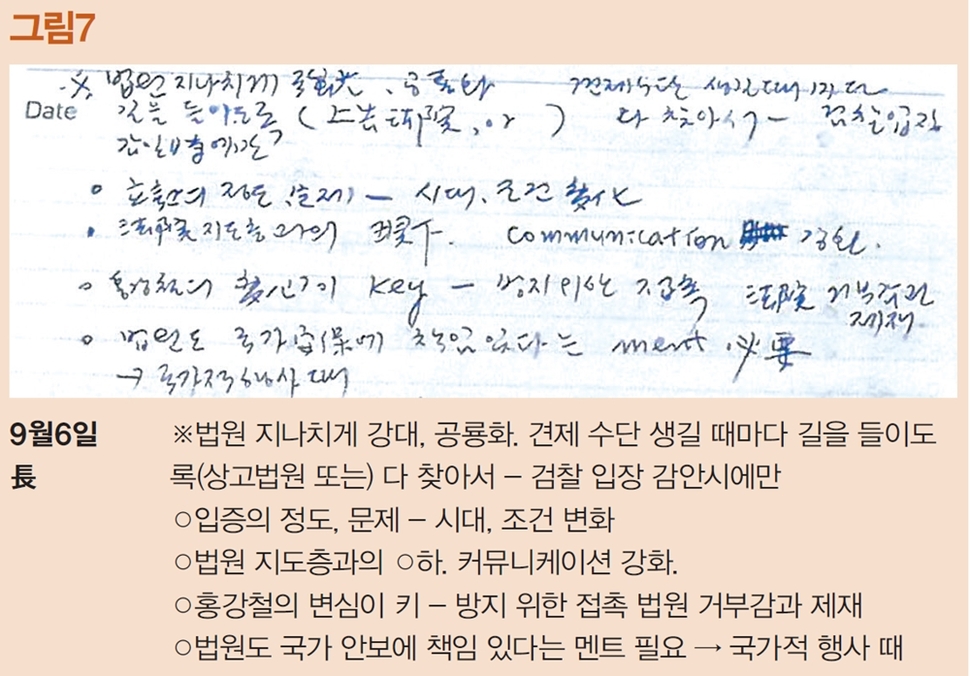 그림7
※ 법원 지나치게 强大, 공룡화 견제수단 생길때마다
Date 길을 들이도록 (上告法院, or ) 다 찾아서 - 검찰입장
감안時에만
○ 입증의 정도, 문제 - 시대, 조건 變化
法院 지도층과의 下. communication 강화.
○ 홍강철의 變心이 key - 방지 위한 접촉 法院 거부감과
제재
○ 법원도 국가 安保에 책임 있다는 ment 必要
→ 국가적 행사 때
9월6일
長
※법원 지나치게 강대, 공룡화. 견제 수단 생길 때마다 길을 들이도
록(상고법원 또는) 다 찾아서 – 검찰 입장 감안시에만
○입증의 정도, 문제 – 시대, 조건 변화
○법원 지도층과의 ○하. 커뮤니케이션 강화.
○홍강철의 변심이 키 – 방지 위한 접촉 법원 거부감과 제재
○법원도 국가 안보에 책임 있다는 멘트 필요 → 국가적 행사 때